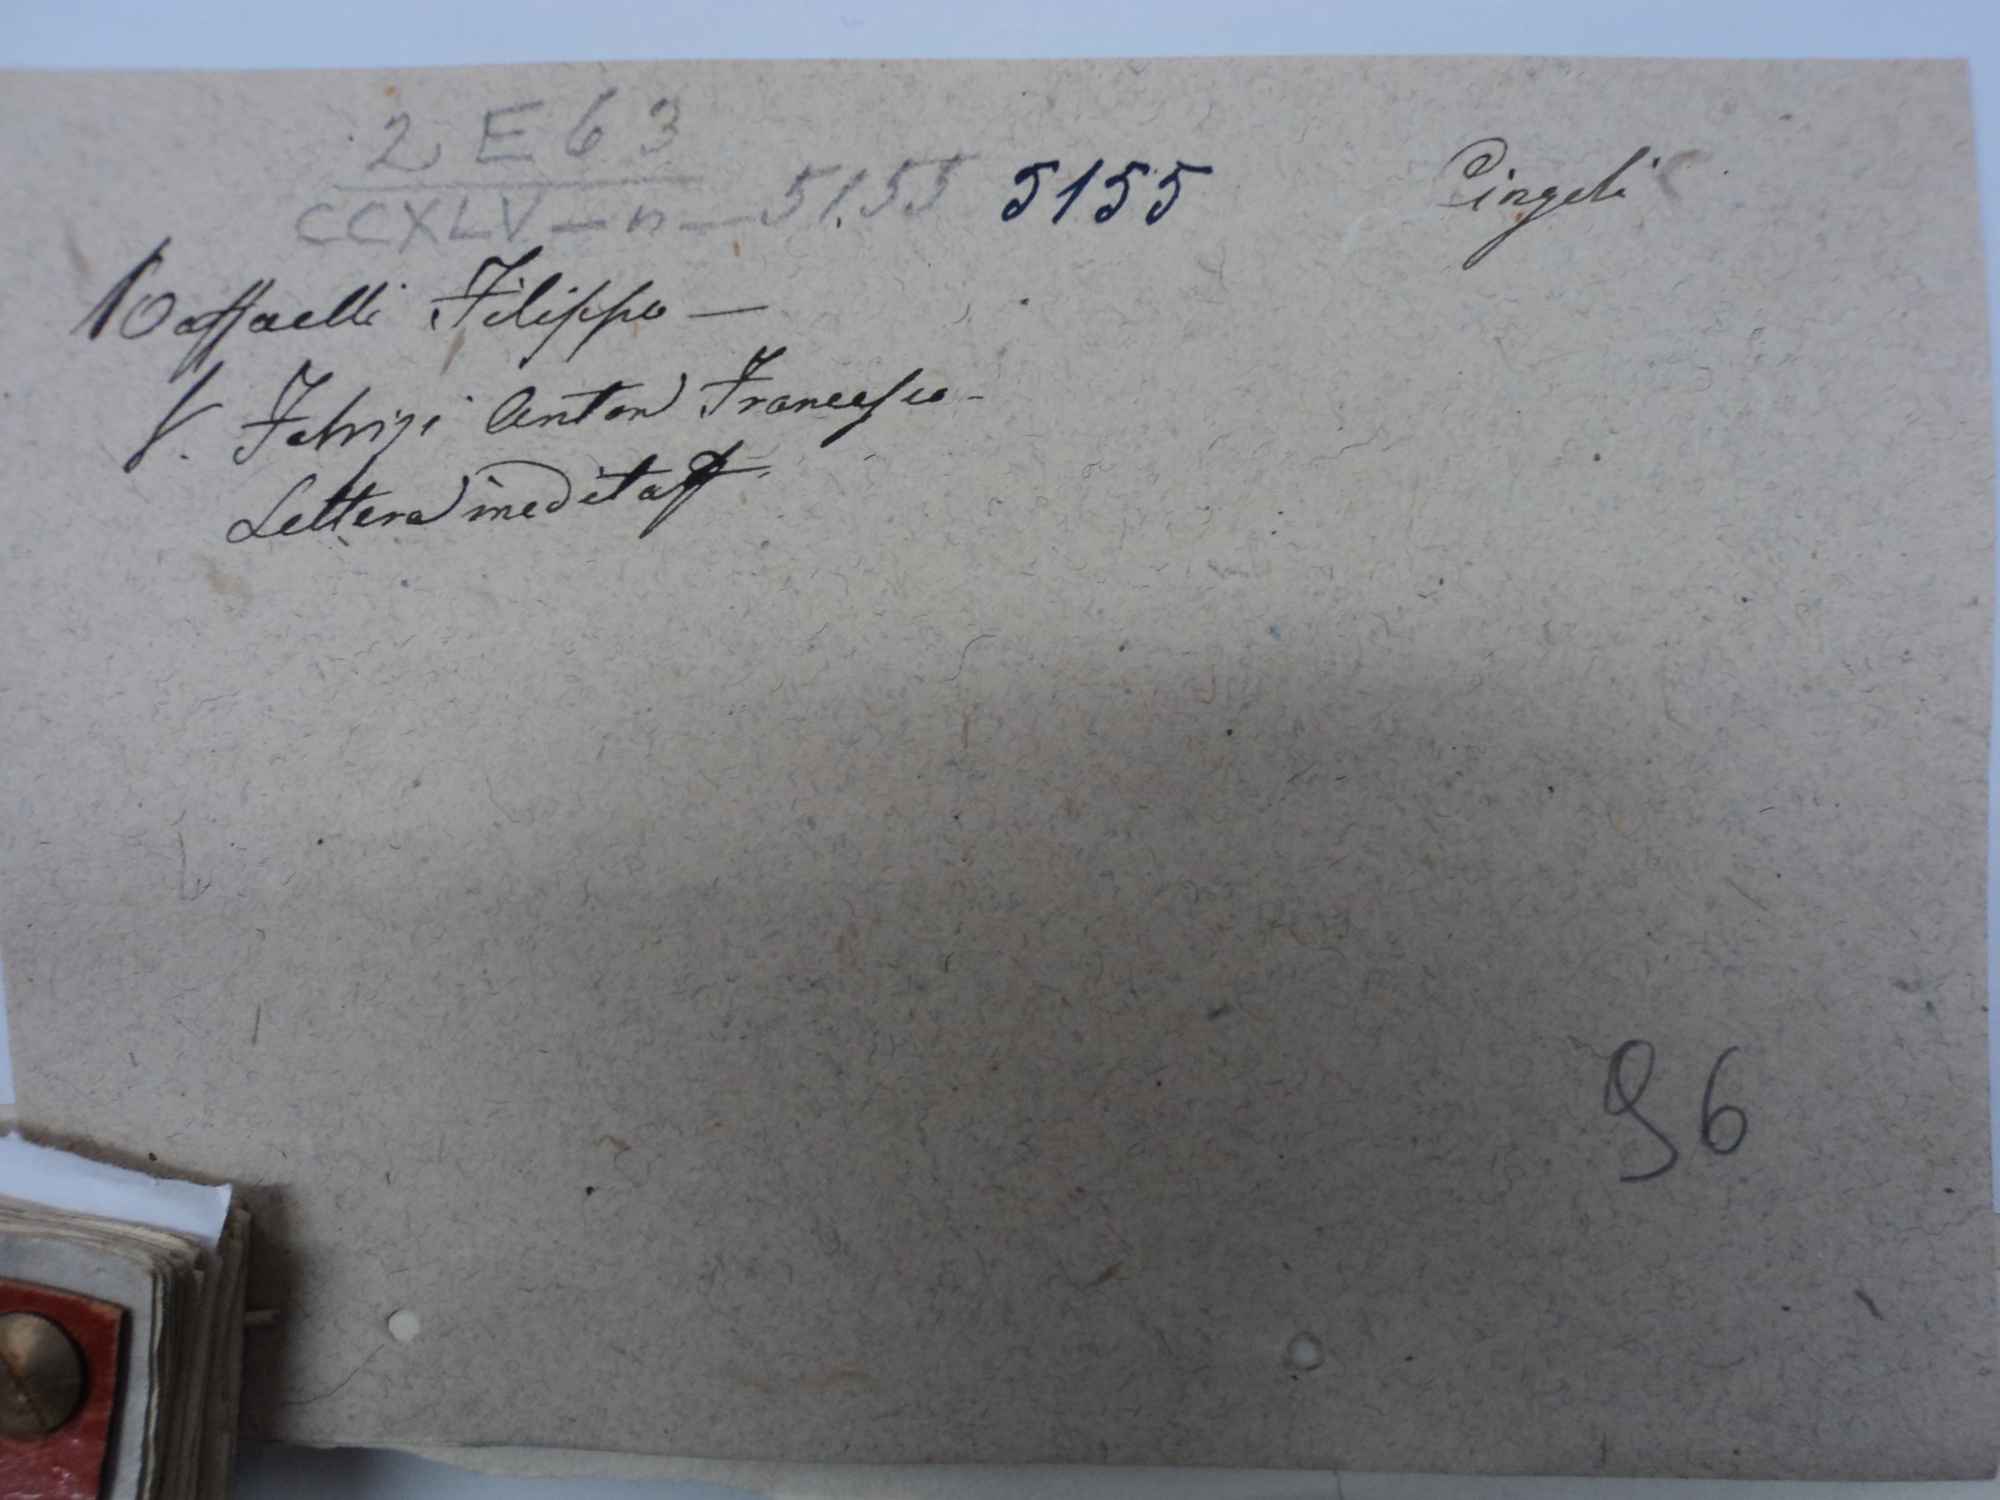 2 E 63
CCXLV - n - 5155 5155 Cingoli
Raffaelli Filippo -
V. Fabrizi Anton Francesco -
Lettera inedita
96